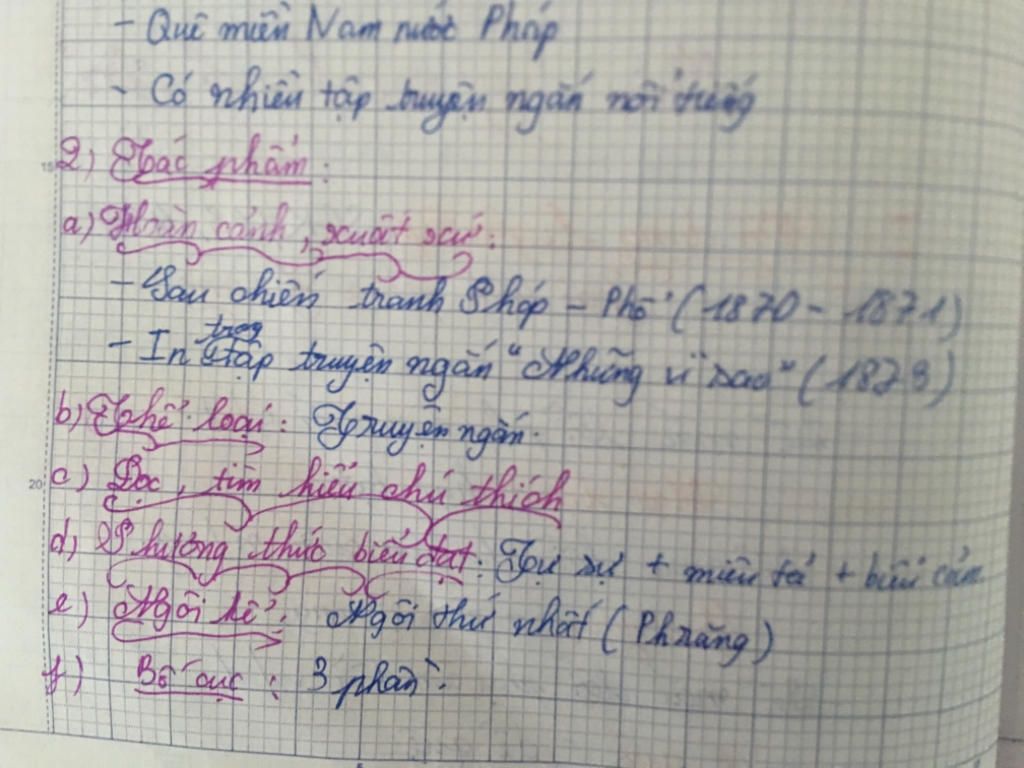 - Quê miền Nam nước Pháp
- Có nhiều tập truyện ngắn nổi tiếng
2) Tác phẩm:
a) Hoàn cảnh, xuất xứ:
- Sau chiến tranh Pháp - Phổ (1870 - 1871)
- In trong tập truyện ngắn "Những vì sao" (1873)
b) Thể loại: Truyện ngắn.
c) Đọc, tìm hiểu chú thích
d) Phương thức biểu đạt: Tự sự + miêu tả + biểu cảm
e) Ngôi kể: Ngôi thứ nhất (Phrăng)
f) Bố cục: 3 phần.